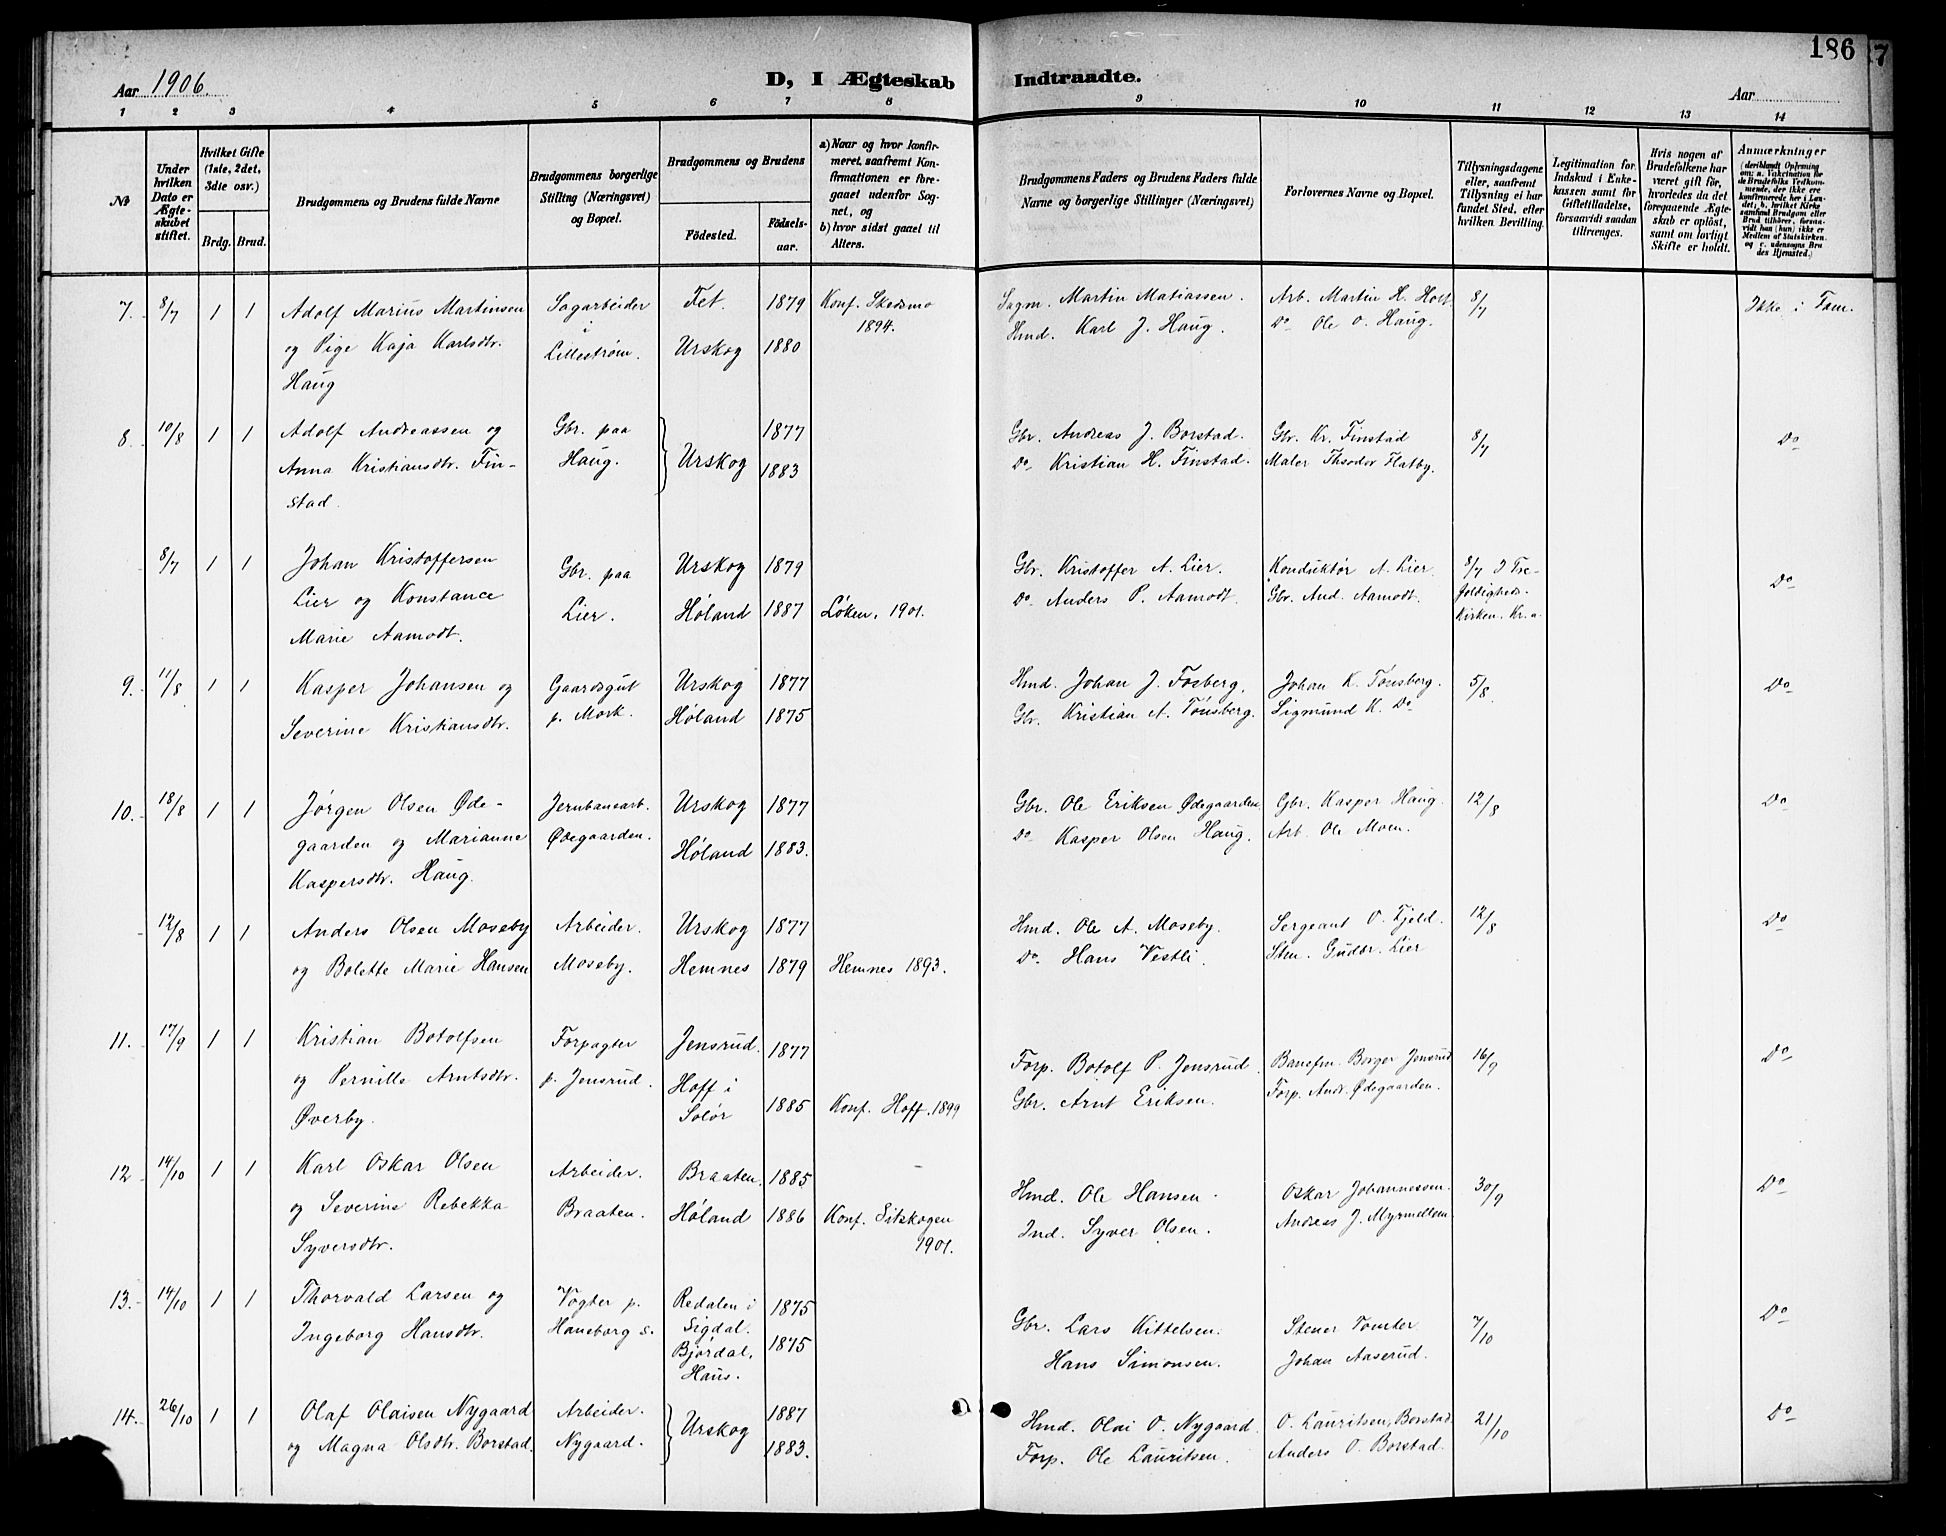 186
7
Aar 1906.
D, I Ægteskab Indtraadte.
Aar
1 2 3 4 5 6 7 8 9 10 11 12 13 14
No
Under hvilken Dato er Ægteskabet stiftet.
Hvilket Gifte (1ste, 2det, 3die osv.)
Brdg. Brud.
Brudgommens og Brudens fulde Navne
Brudgommens borgerlige Stilling (Næringsvei) og Bopæl.
Brudgommens og Brudens
Fødested. Fødsels-aar.
a) Naar og hvor konfirmeret, saafremt Konfirmationen er foregaaet udenfor Sognet, og
b) hvor sidst gaaet til Alters.
Brudgommens Faders og Brudens Faders fulde Navne og borgerlige Stillinger (Næringsvei)
Forlovernes Navne og Bopæl.
Tillysningsdagene eller, saafremt Tillysning ei har fundet Sted, efter hvilken Bevilling.
Legitimation for Indskud i Enkekassen samt for Giftetilladelse, forsaavidt saadan tiltrænges.
Hvis nogen af Brudefolkene har været gift før, hvorledes da det foregaaende Ægteskab er opløst, samt om lovligt Skifte er holdt.
Anmærkninger
(deriblandt Oplysning om: a. Vakcination for de Brudefolks Vedkommende, der ikke ere konfirmerede her i Landet; b. hvilket Kirkesamfund Brudgom eller Brud tilhører, forsaavidt han (hun) ikke er Medlem af Statskirken, og c. udensogns Brudes Hjemsted.)
7. 8/7 1 1 Adolf Marius Martinsen Sagarbeider Fet. 1879 Konf. Skedsmo Sagm. Martin Matiassen. Arb. Martin H. Holt 8/7 Ikke i Fam.
og Pige Kaja Karlsdtr. i Lillestrøm. Urskog 1880 1894. Hmd. Karl J. Haug. Do Ole O. Haug.
Haug
8. 10/8 1 1 Adolf Andreassen og Gbr. paa Urskog 1877 Gbr. Andreas J. Borstad. Gbr. Kr. Finstad 8/7 Do
Anna Kristiansdtr. Fin- Haug. 1883 Do Kristian H. Finstad. Maler Theodor Flatby.
stad.
8/7 1 1 Johan Kristoffersen Gbr. paa Urskog 1879 Gbr. Kristoffer A. Lier. Konduktør A. Lier. 8/7 I Tre-
Lier og Konstance Lier. Høland 1887 Løken. 1901. Do Anders P. Aamodt. Gbr. And. Aamodt. foldigheds- Do
Marie Aamodt. Kirken. Kr.a.
9. 11/8 1 1 Kasper Johansen og Gaardsgut Urskog 1877 Hmd. Johan J. Fosberg. Johan K. Tønsberg. 5/8. Do
Severine Kristiansdtr. p. Mork. Høland 1875 Gbr. Kristian A. Tønsberg. Sigmund K. Do
10. 18/8 1 1 Jørgen Olsen Øde- Jernbanearb. Urskog 1877 Gbr. Ole Eriksen Ødegaarden Gbr. Kasper Haug. 12/8 Do
gaarden og Marianne Ødegaarden. Høland 1883. Do Kasper Olsen Haug. Arb. Ole Moen.
Kaspersdtr. Haug.
12/8 1 1 Anders Olsen Moseby Arbeider. Urskog 1877 Hmd. Ole A. Moseby. Sergeant O. Fjeld. 12/8 Do
og Bolette Marie Hansen Moseby. Hemnes 1879 Hemnes 1893. Do Hans Vestli. Sten. Gudbr. Lier
11. 17/9 1 1 Kristian Botolfsen Forpagter Jensrud. 1877 Forp. Botolf P. Jensrud. Banefm. Borger Jensrud 16/9 Do
og Pernille Arntsdtr. p. Jensrud. Hoff i Solør 1885 Konf. Hoff. 1899 Gbr. Arnt Eriksen. Forp. Andr. Ødegaarden.
Øverby.
12 14/10 1 1 Karl Oskar Olsen Arbeider. Braaten. 1885 Hmd. Ole Hansen. Oskar Johannessen. 30/9 Do
og Severine Rebekka Braaten. Høland 1886 Konf. Sitskogen Ind. Syver Olsen. Andreas J. Myrmellem
Syversdtr. 1901.
13. 14/10 1 1 Thorvald Larsen og Vogter p. Redalen i Sigdal. 1875 Gbr. Lars Kittelsen. Stener Tomter 7/10 Do
Ingeborg Hansdtr. Haneborg s. Bjørdal, Haus. 1875 Hans Simonsen. Johan Aaserud.
14. 26/10 1 1 Olaf Olaisen Nygaard Arbeider. Urskog 1887 Hmd. Olai O. Nygaard. O. Lauritsen, Borstad 21/10 Do
og Magna Olsdtr. Borstad. Nygaard. 1883. Forp. Ole Lauritsen. Anders O. Borstad.